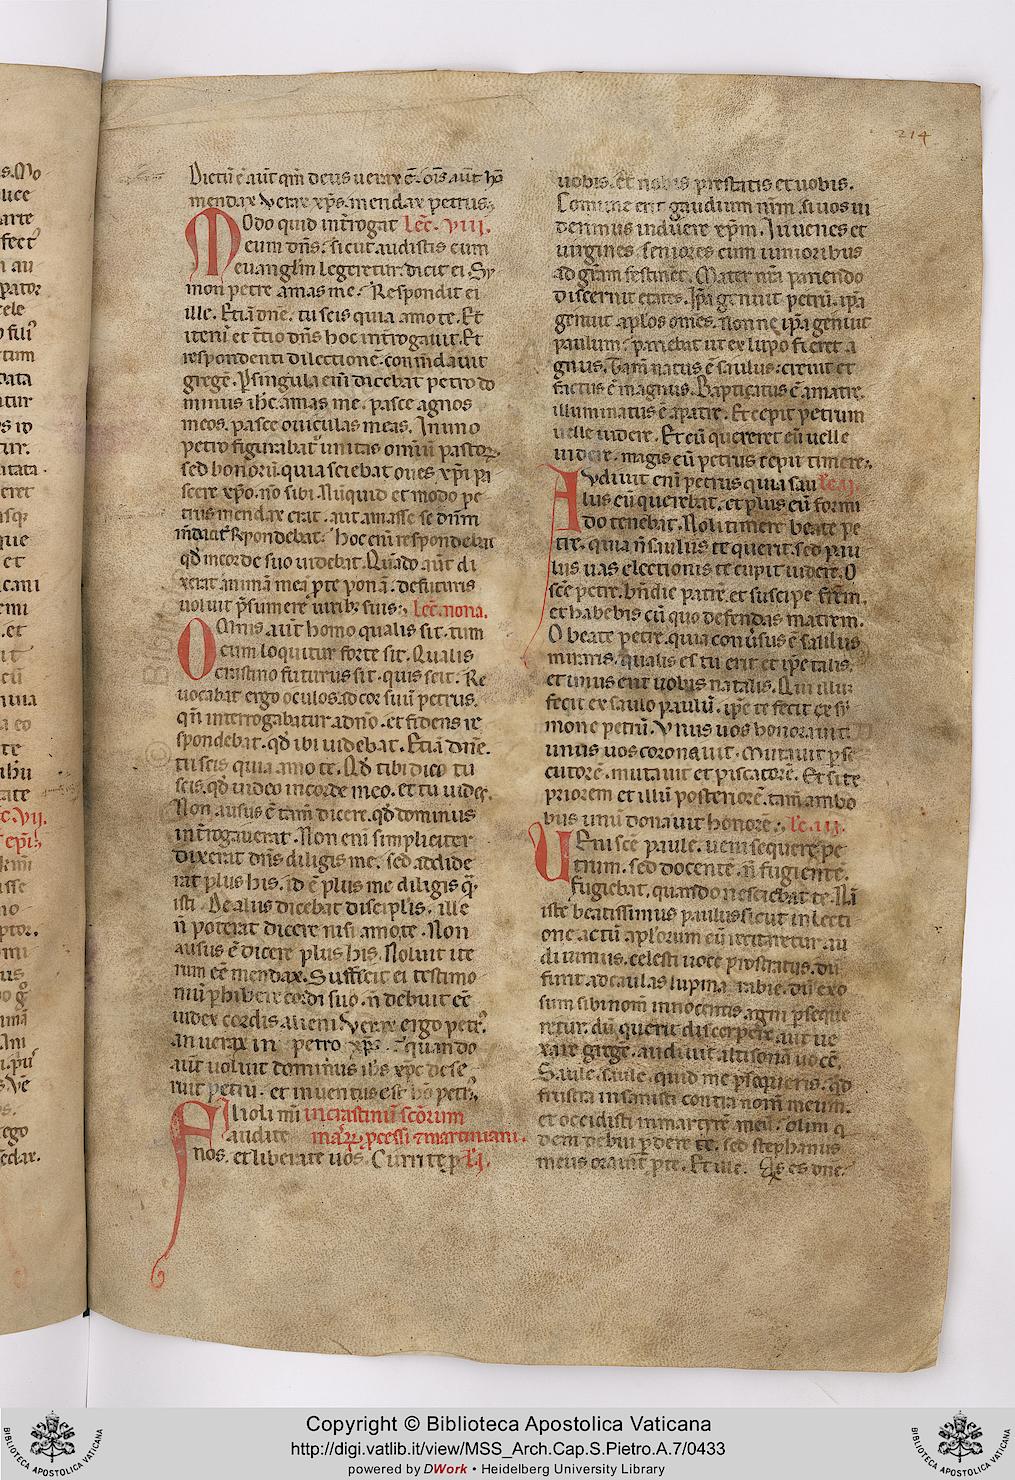 214
Dictū ē aūt qm̄ deus uerax ē. oīs aūt hō
mendax. Verax xp̄s. mendax petrus.
Modo quid int̄rogat Lec̄. VIII.
eum dn̄s. sicut audistis cum
euangl̄m legeretur. dicit ei. Sy
mon petre amas me. Respondit ei
ille. Etiā dn̄e. tu scis quia amo te. Et
iterū et t̄tio dn̄s hoc int̄rogauit. Et
respondenti dilectionē. com̄dauit
gregē. P singula eni dicebat petro do
minus ih̄c. amas me. pasce agnos
meos. pasce ouiculas meas. In uno
petro figurabat᷑ unitas omiū pastoꝝ.
sed bonorū. quia sciebat oues xp̄i pa
scere xp̄o. nō sibi. Nūquid et modo pe
trus mendax erat. aut amasse se dn̄m
mdacit᷑ respondebat. hoc eni respondebat
qd̄ in corde suo uidebat. Quādo aūt di
xerat animā meā p te ponā. de futuris
uoluit p̄sumere uirib; suis. Lec̄. nona.
Omnis aūt homo qualis sit. tum
cum loquitur forte sit. Qualis
crastino futurus sit. quis scit. Re
uocabat ergo oculos ad cor suū petrus.
qn̄ interrogabatur a dn̄o. et fidens re
spondebat. qd̄ ibi uidebat. Etiā dn̄e.
tu scis quia amo te. Qd̄ tibi dico tu
scis. qd̄ uideo in corde meo. et tu uides.
Non ausus ē tam̄ dicere. qd̄ dominus
int̄rogauerat. Non eni simpliciter
dixerat dn̄s diligis me. sed addide
rat plus his. id ē plus me diligis q̄
isti. De aliis dicebat discipl̄is. ille
n̄ poterat dicere nisi amo te. Non
ausus ē dicere plus his. Noluit ite
rum eē mendax. Sufficit ei testimo
niū phibere cordi suo. n̄ debuit eē
iudex cordis alieni. Verax ergo petr᷒.
an uerax in petro xp̄s. quando
aūt uoluit dominus ih̄s xp̄c dese
ruit petrū. et inuentus est hō petr᷒.
Filioli mi in crastinū sc̄orum
audite marꝝ. p̄cessi ⁊ martiniani.
nos. et liberate uos. Currite p Lec̄. I.
uobis. et nobis prestatis et uobis.
Comune erit gaudium nr̄m. si uos ui
derimus induere xp̄m. Iuuenes et
uirgines. seniores cum iunioribus
ad gr̄am festinet. Mater nr̄a pariendo
discernit etates. Ip̄a genuit petrū. ip̄a
genuit apl̄os omēs. Nonne ip̄a genuit
paulum. pariebat ut ex lupo fieret a
gnus. Tam̄ natus ē saulus. creuit et
factus ē magnus. Baptizatus ē a matre.
illuminatus ē a patre. Et cepit petrum
uelle uidere. Et cū quereret eū uelle
uidere. magis eū petrus cepit timere.
Audiuit eni petrus quia sau Lec̄. II.
lus eū querebat. et plus eū formi
do tenebat. Noli timere beate pe
tre. quia n̄ saulus te querit. sed pau
lus uas electionis te cupit uidere. O
sc̄e petre. bn̄dic patrē. et suscipe fr̄em.
et habebis cū quo defendas matrem.
O beate petre. quia conūsus ē saulus
miraris. qualis es tu erit et ip̄e talis.
et unus erit uobis natalis. Qui illū
fecit ex saulo paulū. ip̄e te fecit ex sy
mone petrū. Vnus uos honorauit.
unus uos coronauit. Mutauit p̄se
cutorē. mutauit et piscatorē. Et si te
priorem et illū posteriorē. tam̄ ambo
bus unū donauit honorē. Lec̄. III.
Ueni sc̄e paule. ueni sequere pe
trum. sed docentē. n̄ fugientē.
fugiebat. quando nesciebat te. Nā
iste beatissimus paulus sicut in lecti
one actuū apl̄orum cū recitaretur au
diuimus. celesti uoce prostratus. dū
furit ad caulas lupina rabie. dū exo
sum sibi nom̄ innocentis agni p̄seque
retur. dū querit discerpere. aut ue
xare gregē. audiuit altisonā uocē.
Saule. saule. quid me p̄sequeris. qd̄
frustra insanisti contra nom̄ meum.
et occidisti in martyrē meū. olim q
dem debui pdere te. sed stephanus
meus orauit p te. Et ille. Qs es dn̄e.
Copyright © Biblioteca Apostolica Vaticana
http://digi.vatlib.it/view/MSS_Arch.Cap.S.Pietro.A.7/0433
powered by DWork • Heidelberg University Library
BIBLIOTECA APOSTOLICA VATICANA
BIBLIOTECA APOSTOLICA VATICANA